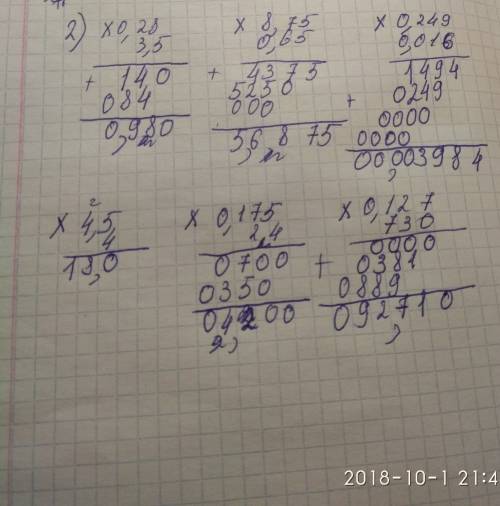 2) × 0,28
3,5
+ 140
084
0,980
× 8,75
0,65
+ 4375
5250
000
5,6875
× 0,249
0,016
1494
+ 0249
0000
0000
00003984
,
2
× 4,5
4
18,0
× 0,175
2,4
0700
0350
04200
,
× 0,127
730
0000
+ 0381
0889
092710
,
2018-10-1 21:4